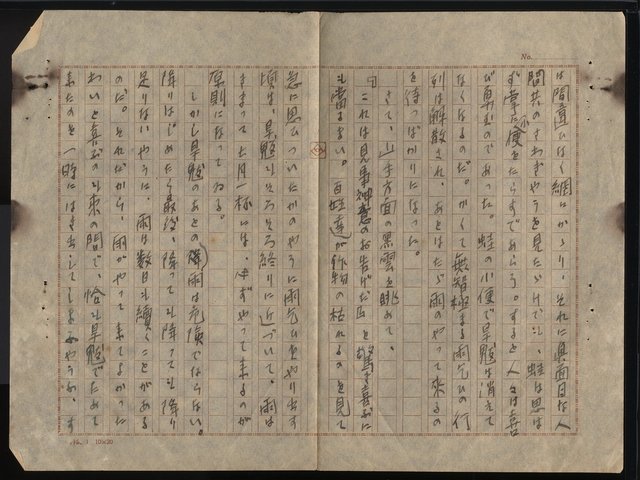 No.
は間違ひなく網にかゝり、それに真面目な人
間共のさわぎやうを見たゞけでも、蛙は思は
ず常に小便をたらすであらう。すると人々は喜
び勇むのであつた。蛙の小便で旱魃は消えて
なくなるのだ。かくて無智極まる雨乞ひの行
列は解散され、あとはたゞ雨のやつて来るの
を待つばかりになつた。
さて、山手方面の黒雲を眺めて、
『これは見事神意のお告げだ』と驚き喜ぶに
も當るまい。百姓達が作物の枯れるのを見て
急に思ひついたかのやうに雨乞ひをやり出す
頃は、旱魃もそろそろ終りに近づいて、雨は
きまつて七月一杯には、必ずやつて来るのが
原則になつてゐる。
しかし旱魃のあとの降雨は危険でならない。
降りはじめたら最後、降つても降つても降り
足りないやうに、雨は数日も續くことがある
のだ。それだから、雨がやつて来てよかつた
わいと喜ぶのも束の間で、恰も旱魃でためて
来たのを一時にはき出してしまふやうな、す
10×20